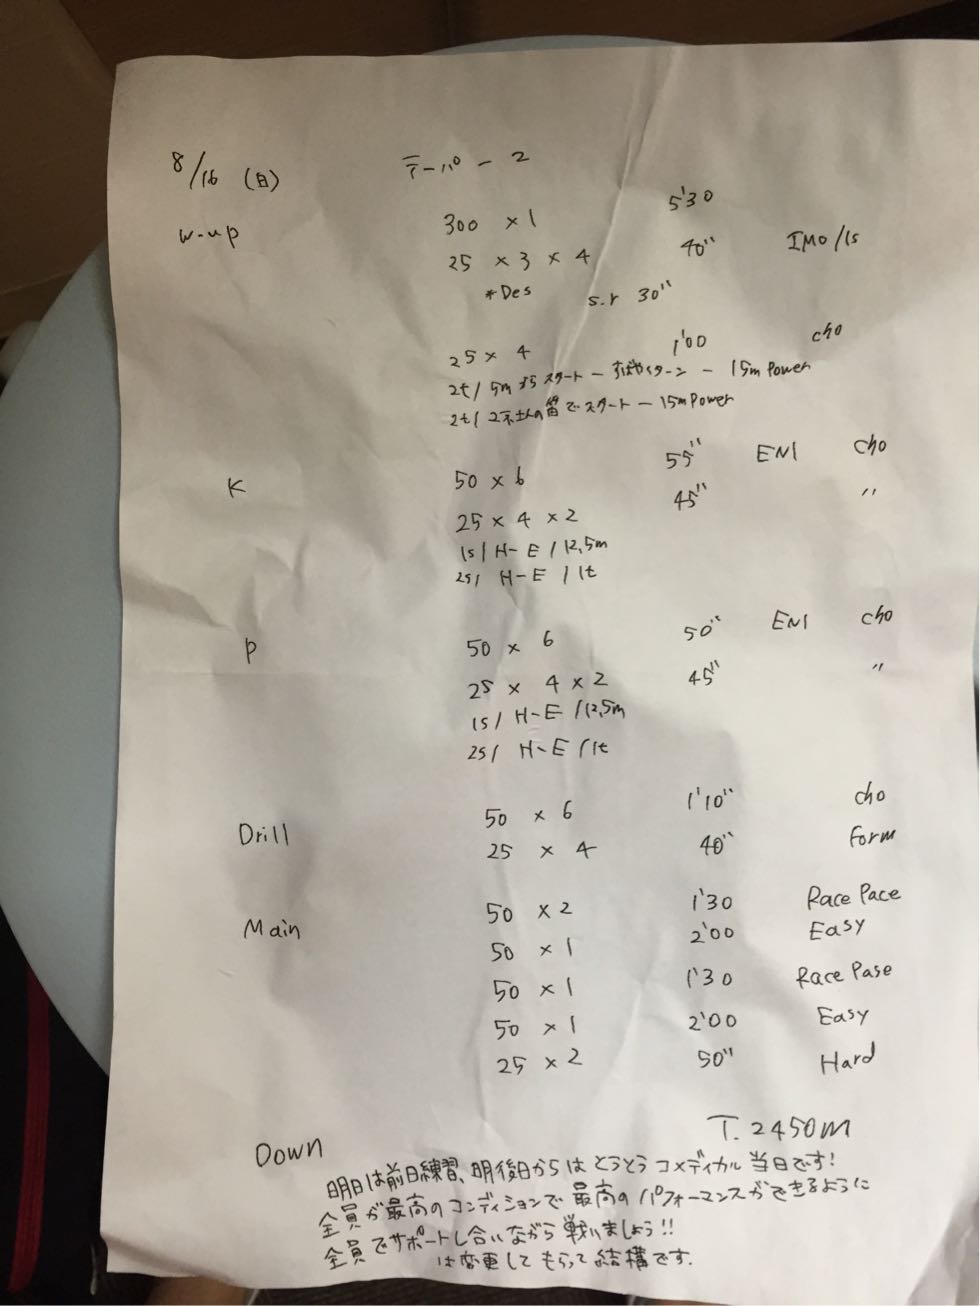 8/16 (日) テーパー 2
w-up 300 × 1 5'30
25 × 3 × 4 40" IMO/1s
*Des s.r 30"
25 × 4 1'00 cho
2t/ 5m からスタート ー すばやくターン ー 15m Power
2t/ の笛でスタート ー 15m Power
K 50 × 6 55" EN1 cho
25 × 4 × 2 45" "
1s/ H-E /12,5m
2s/ H-E /1t
P 50 × 6 50" EN1 cho
25 × 4 × 2 45" "
1s/ H-E /12,5m
2s/ H-E /1t
Drill 50 × 6 1'10" cho
25 × 4 40" Form
Main 50 × 2 1'30 Race Pace
50 × 1 2'00 Easy
50 × 1 1'30 Race Pase
50 × 1 2'00 Easy
25 × 2 50" Hard
T. 2450m
Down
明日は前日練習、明後日からはとうとうコメディカル当日です!
全員が最高のコンディションで最高のパフォーマンスができるように
全員でサポートし合いながら戦いましょう!!
は変更してもらって結構です.